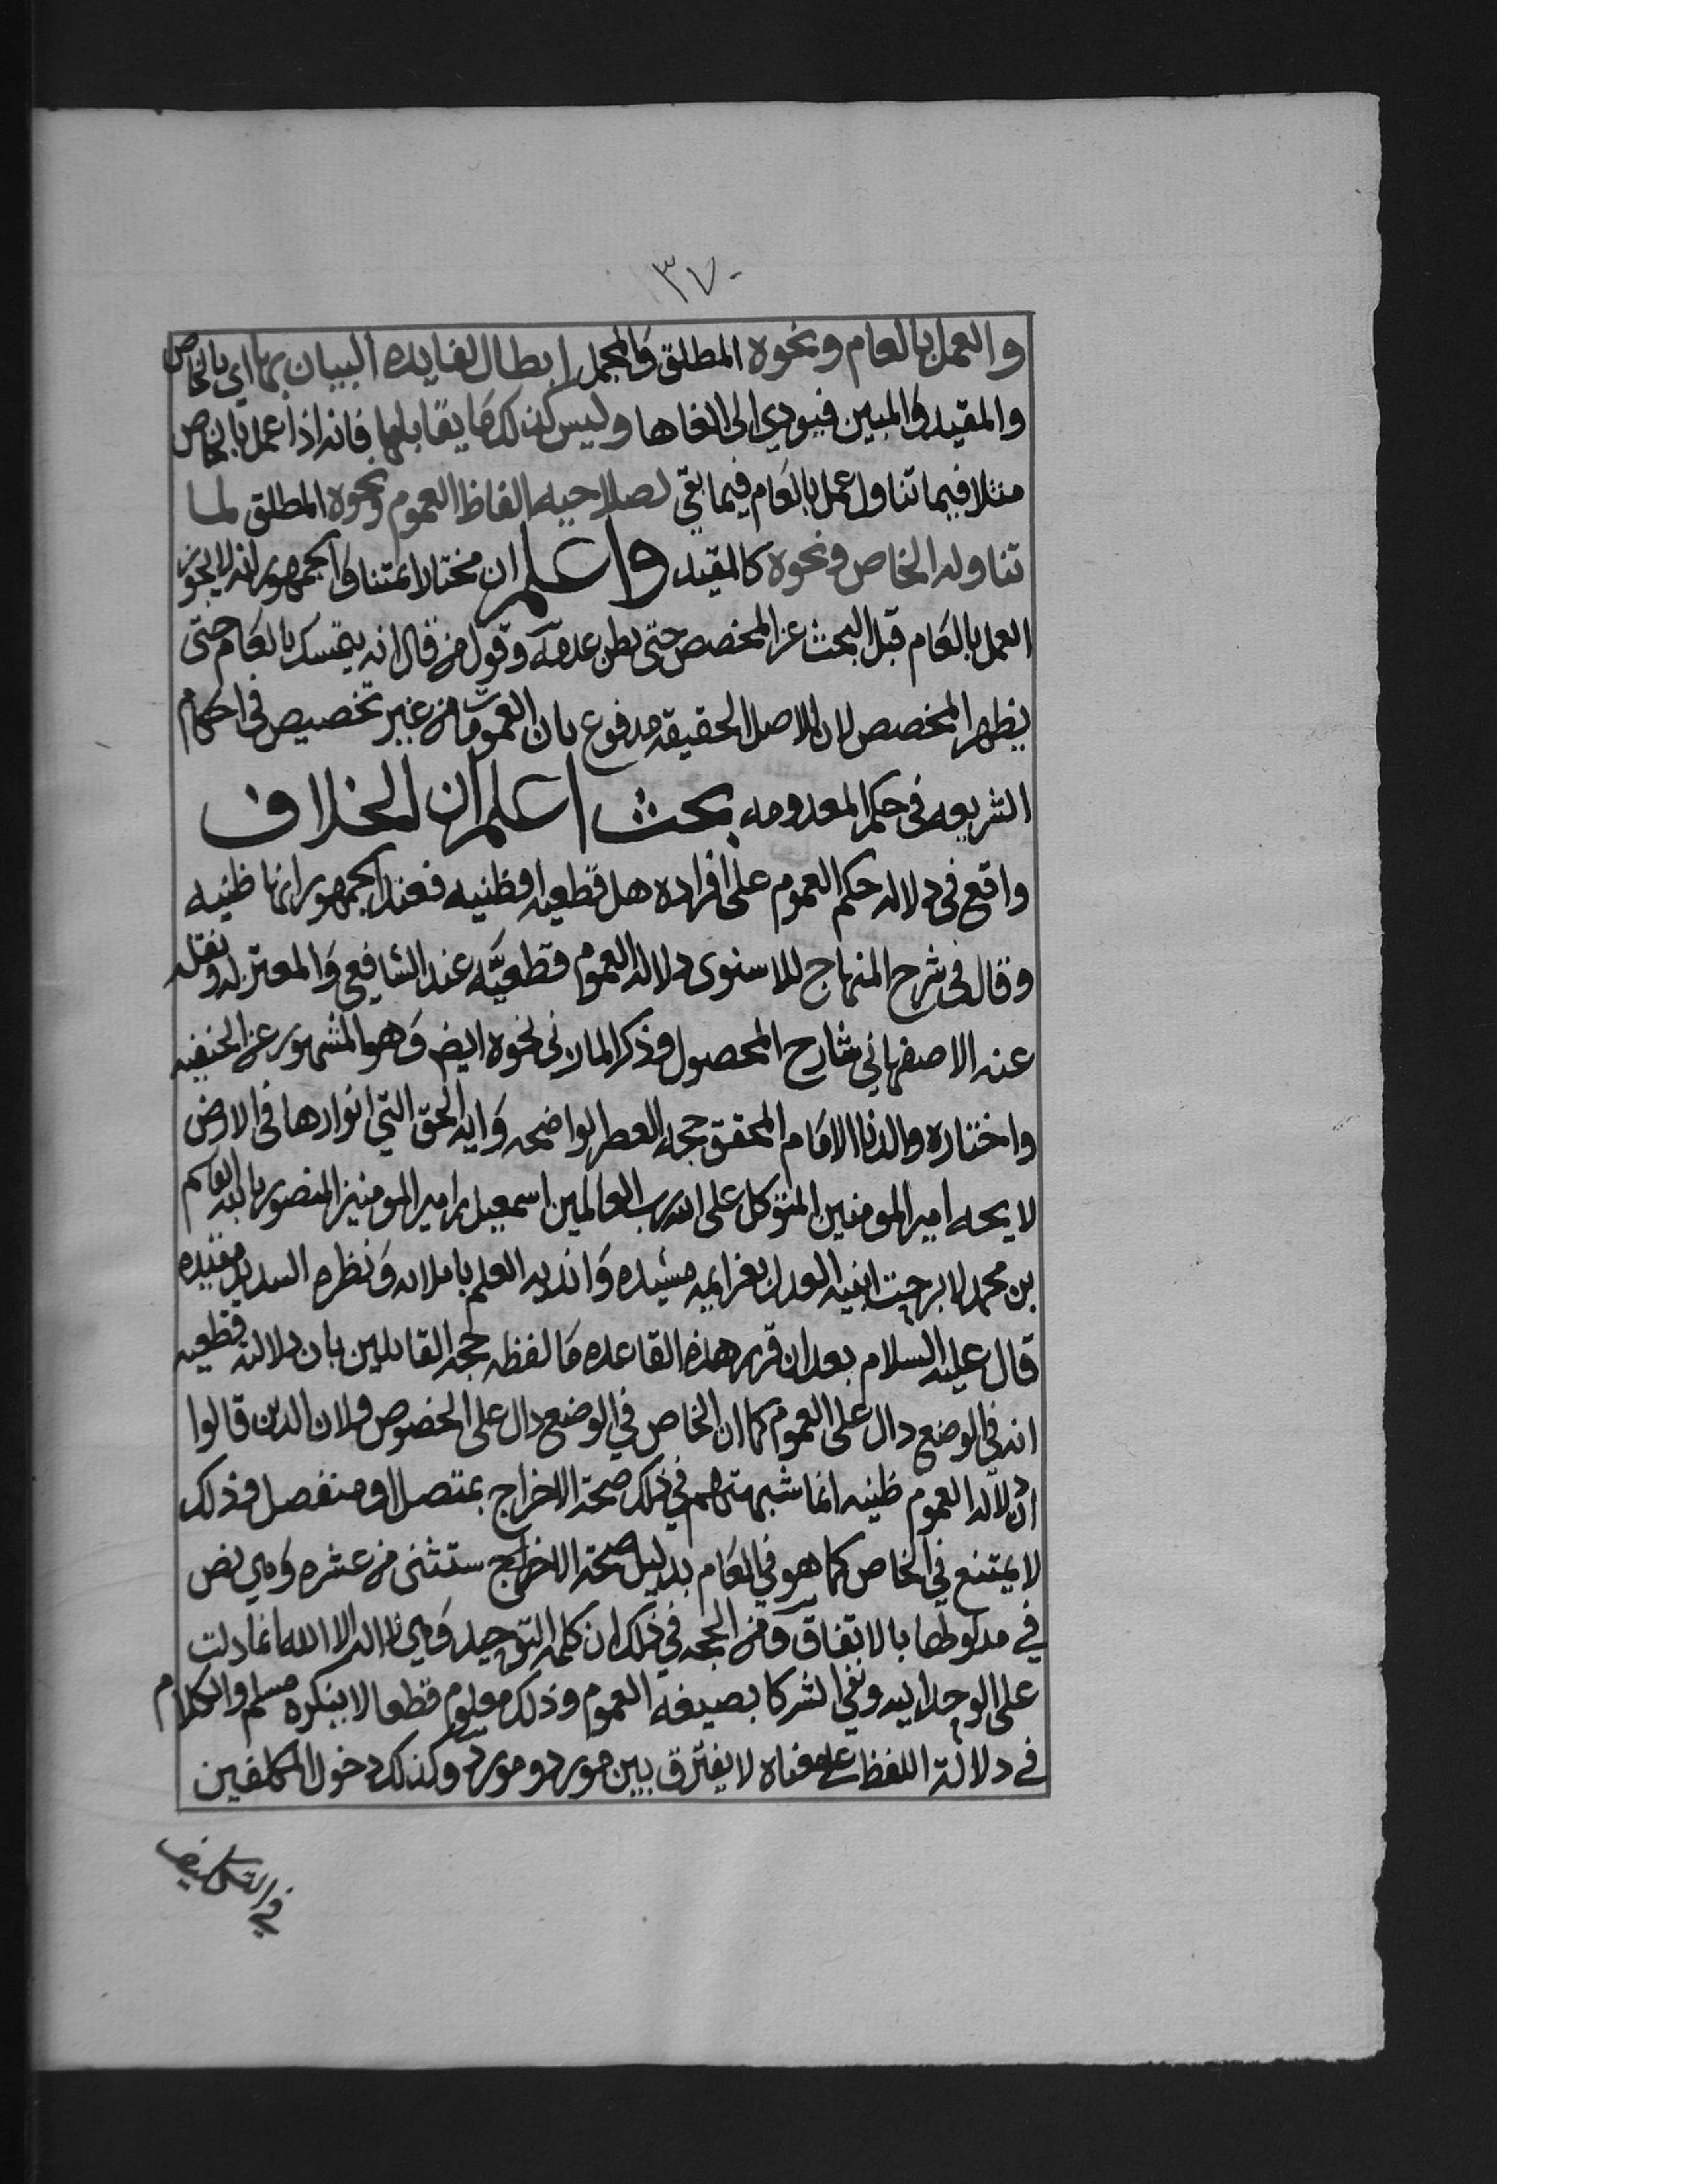 ٣٧٠
والعمل بالعام ونحوه المطلق والمجمل ابطال لفايده البيان بها اي بالخاص
والمقيد والمبين فيودي الى الغاها وليس كذلك ما يقابلها فانه اذا عمل بالخاص
مثلا فيما تناوله عمل بالعام فيما بقي لصلاحيه الفاظ العموم ونحوه المطلق لما
تناوله الخاص ونحوه كالمقيد واعلم ان مختار ائمتنا والجمهور انه لا يجوز
العمل بالعام قبل البحث عن المخصص حتى يظن عدمه وقول من قال انه يتمسك بالعام حتى
يظهر المخصص لان الاصل الحقيقه مدفوع بان العمومات من غير تخصيص في احكام
الشريعه في حكم المعدومه بحث اعلم ان الخلاف
واقع في دلاله حكم العموم على افراده هل قطعيه او ظنيه فعند الجمهور انها ظنيه
وقال في شرح المنهاج للاسنوى دلاله العموم قطعيّه عند الشافعي والمعتزله ونقله
عنه الاصفهاني شارح المحصول وذكر المازني نحوه ايض وهو المشهور عن الحنفيه
واختاره والدنا الامام المحقق حجه العصر الواضحه وايه الحق التي انوارها في الارض
لايحه امير المومنين المتوكل على الله رب العالمين اسمعيل بن امير المومنين المنصور بالله القاسم
بن محمد لا برحت ابنيه العدل بعزايمه مشيده واندیه العلم باملائه ونظره السديد مفيده
قال عليه السلام بعد ان قرر هذه القاعده ما لفظه حجه القايلين بان دلالته قطعيه
انه في الوضع دال على العموم كما ان الخاص في الوضع دال على الخصوص ولان الذين قالوا
ان دلاله العموم ظنيه انما شبهتهم في ذلك صحة الاخراج بمتصل او منفصل وذلك
لا يمتنع في الخاص كما هو في العام بدليل صحة الاخراج ستثنى من عشره وهي نص
في مدلولها بالاتفاق ومن الحجه في ذلك ان كلمه التوحيد وهي لا اله الا الله انما دلت
على الوحدانيه ونفي الشركا بصيغه العموم وذلك معلوم قطعا لا ينكره مسلم والكلام
في دلالة اللفظ على معناه لا يفترق بين مورد ومورد وكذلك دخول المكلفين